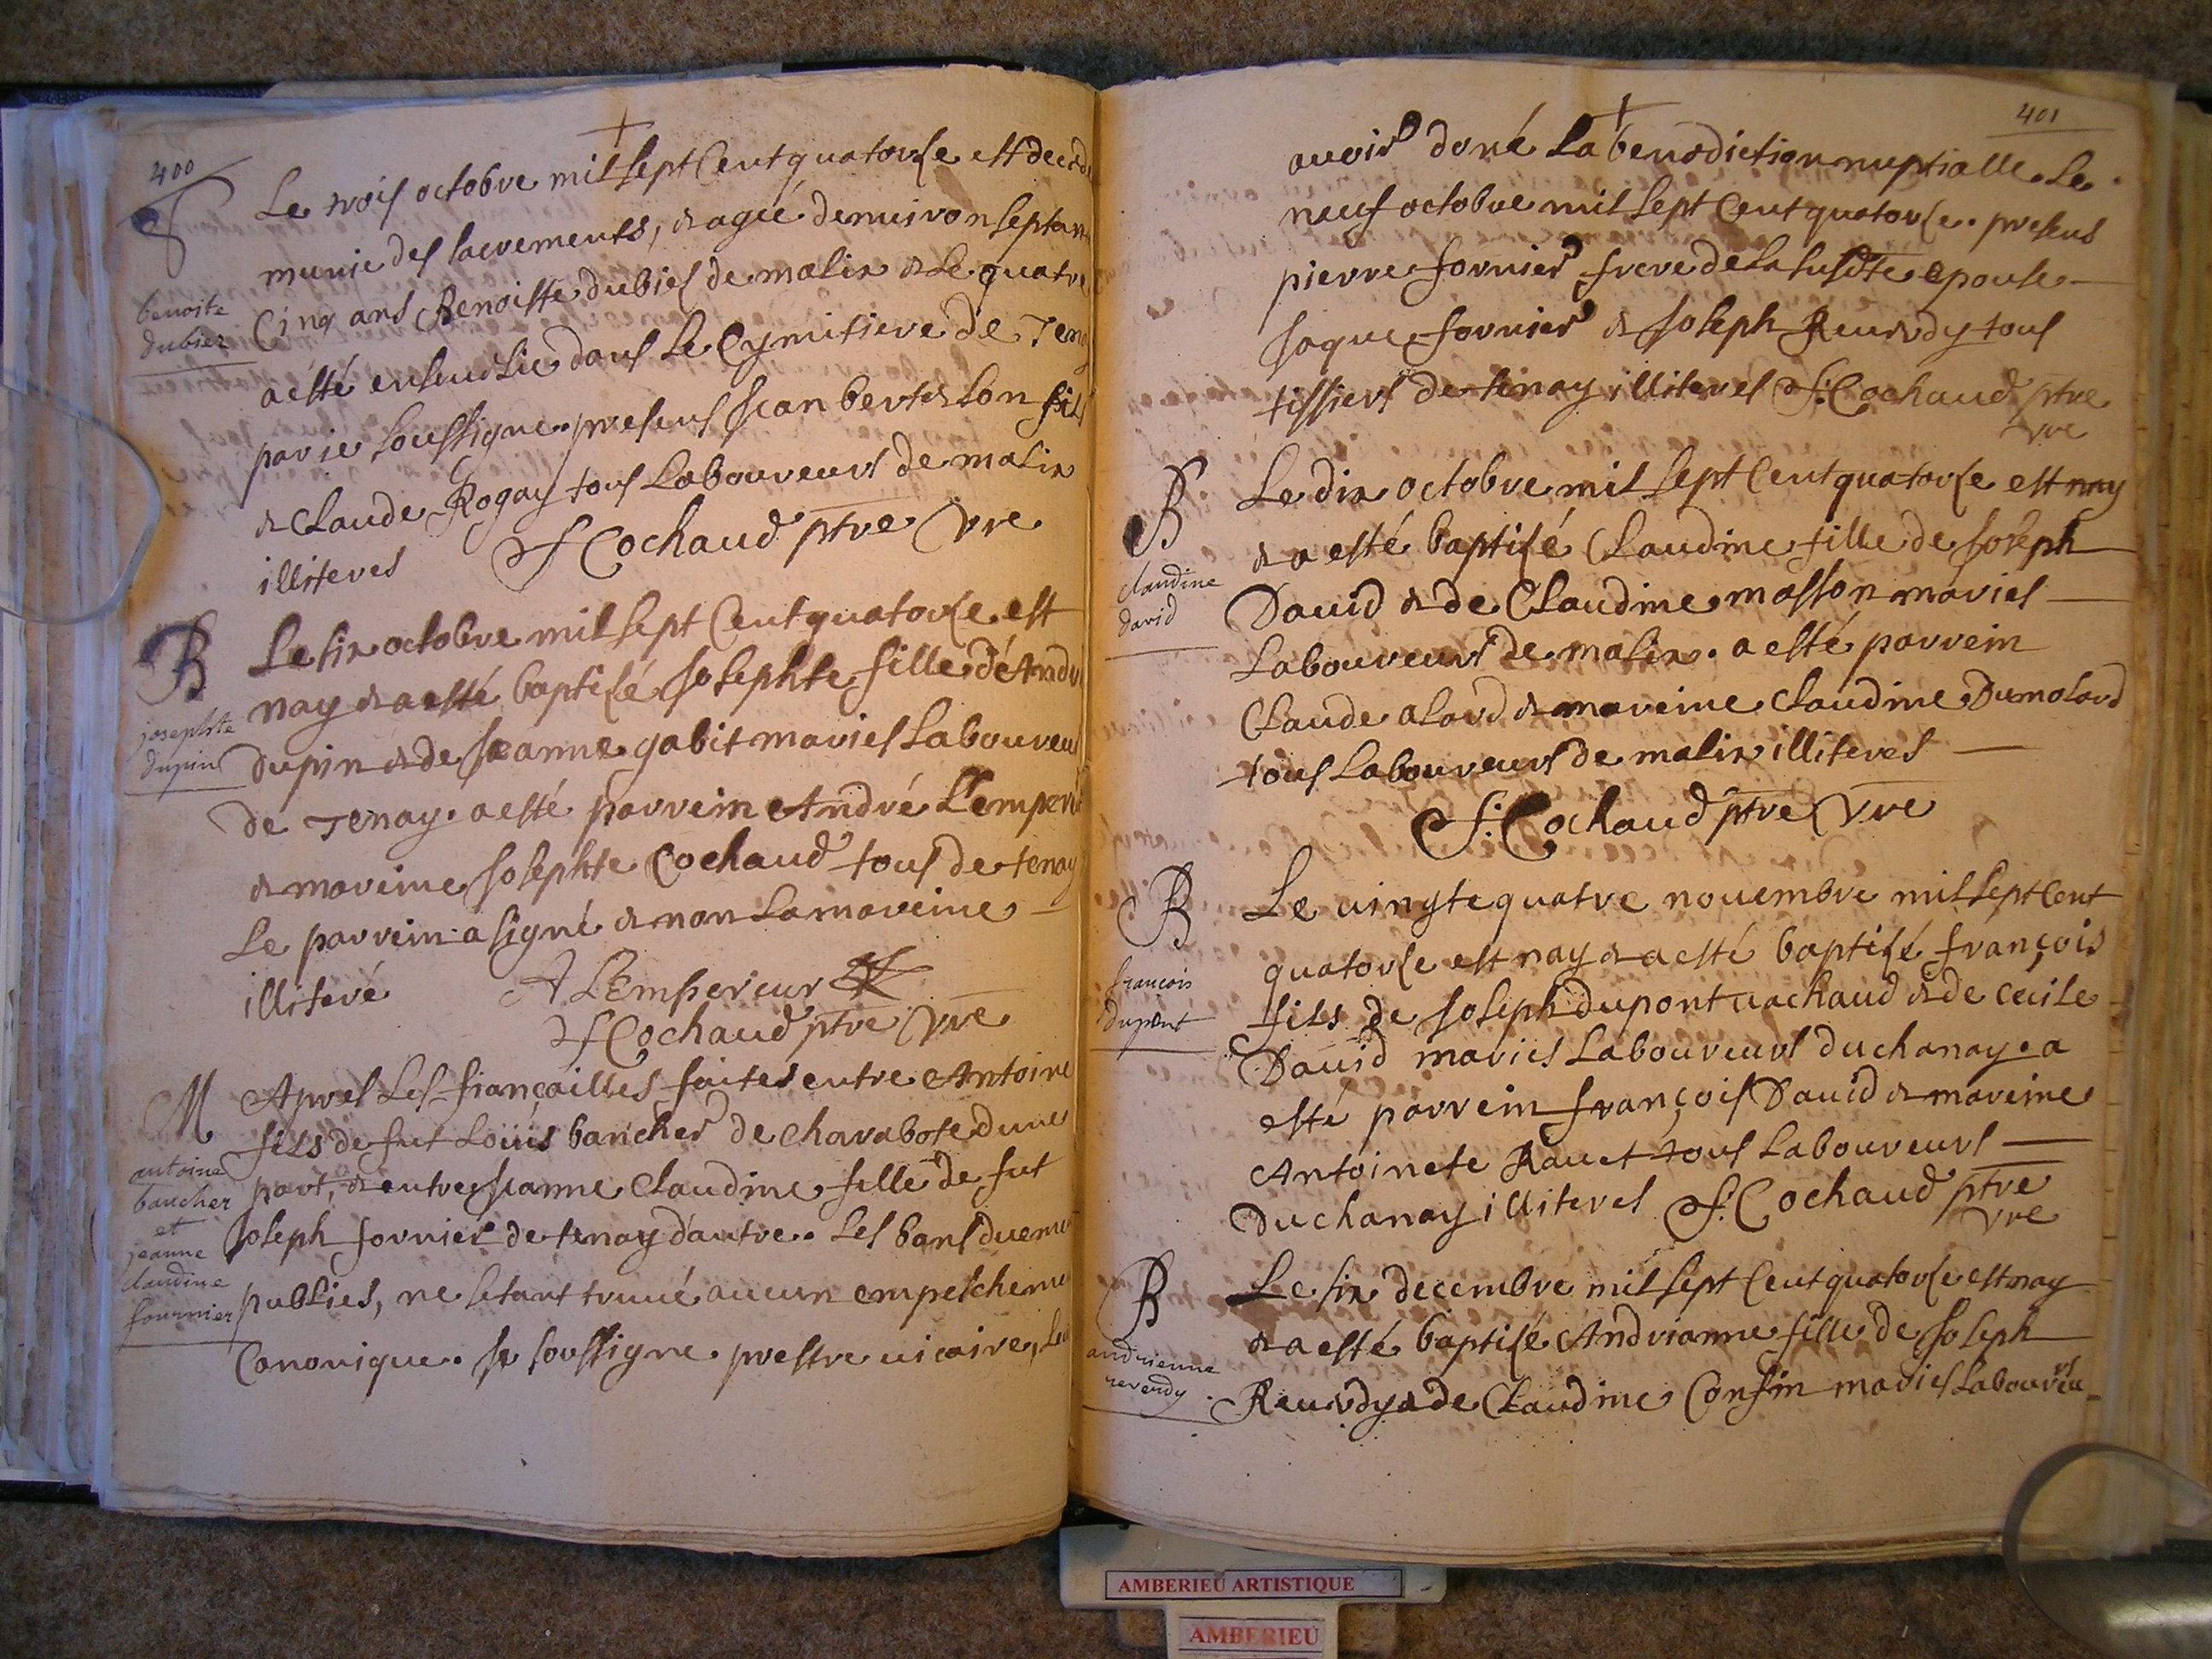 400
Le trois octobre mil sept Cent quatorse est decedé
munie des sacrements, & agée denuiron septante
Cinq ans Benoiste dubiez de malix & Le quatre
a esté enseuelie dans Le Cymitiere de Tenay
par je soussigne. presens Jean bert & son fils
& Claude Rogay tous Laboureurs de malix
illiteres J Cochaud ptre vre
benoite
dubiez
B
Le six octobre mil sept Cent quatorse est
nay & a esté baptisé Josephte fille d'André
dupin & de Jeanne gabit mariés Laboureurs
de Tenay. a esté parrein André L'empereur
& mareine Josephte Cochaud tous de tenay
Le parrein a signé & non La mareine
illiteré A LEmpereur
J Cochaud ptre vre
josephte
dupin
M
Apres Les fiançailles faites entre Antoine
fils de fut Loüis bancher de charabote dune
part, & entre Jeanne Claudine fille de fut
Joseph fornier de tenay d'autre. Les bans duement
publies, ne s'etant truué aucun empeschement
Canonique. Je soussigne prestre vicaire, Leur
antoine
bancher
et
jeanne
claudine
fournier
401
auoir doné La benediction nuptialle Le
neuf octobre mil sept Cent quatorse. presens
pierre fornier frere de La susdte epouse
Jaque fornier & Joseph Reuerdy tous
tissiers de tenay illiteres J: Cochaud ptre
vre
B
Le dix octobre mil sept Cent quatorse est nay
& a esté baptisé Claudine fille de Joseph
Dauid & de Claudine masson mariés
Laboureurs de malix. a esté parrein
Claude alard & mareine Claudine Dumolard
tous Laboureurs de malix illiteres
J: Cochaud ptre vre
claudine
david
B
Le uingtequatre nouembre mil sept Cent
quatorse est nay & a esté baptisé françois
fils de Joseph dupont uachaud & de cecile
Dauid mariés Laboureurs du chanay. a
esté parrein françois Dauid & mareine
Antoinete Rauet tous Laboureurs
Du chanay illiteres J: Cochaud ptre
vre
françois
dupont
B
Le six decembre mil sept Cent quatorse est nay
& a esté baptisé Andrianne fille de Joseph
Reuerdy & de Claudine Consin mariés Laboureurs
andrienne
reverdy
AMBERIEU ARTISTIQUE
AMBERIEU